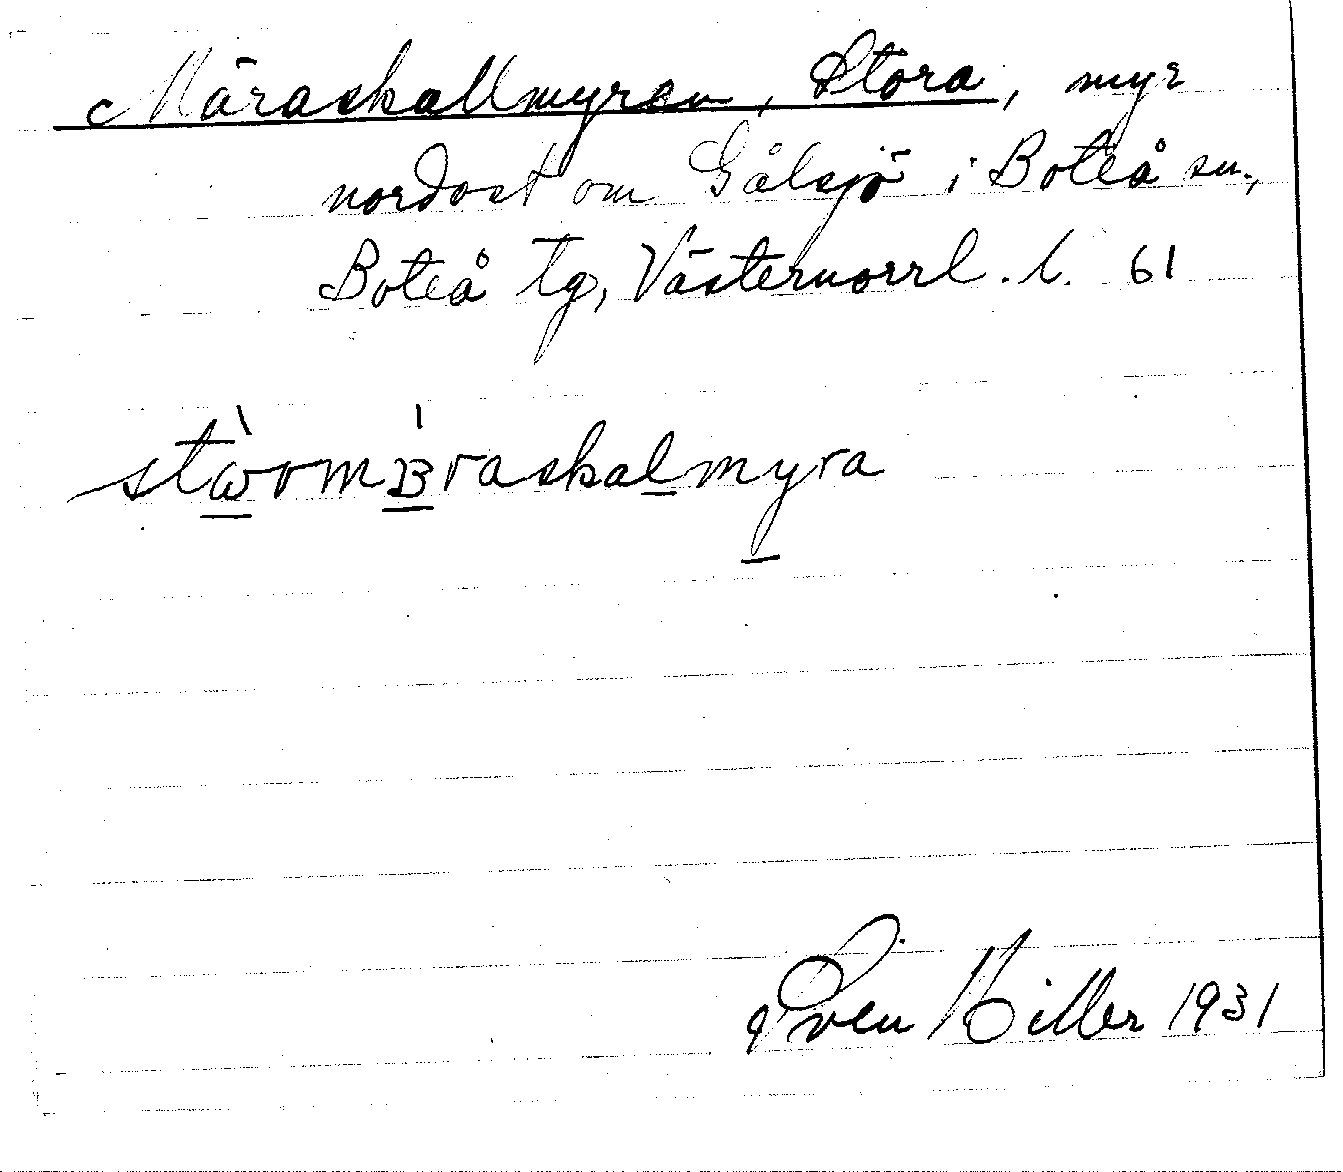 Märaskallmyren, Stora, myr
nordost om Gålsjö i Boteå sn.,
Boteå tg, Västernorrl. l. 61
stὼrmB̀raskalmyra
Sven Hiller 1931